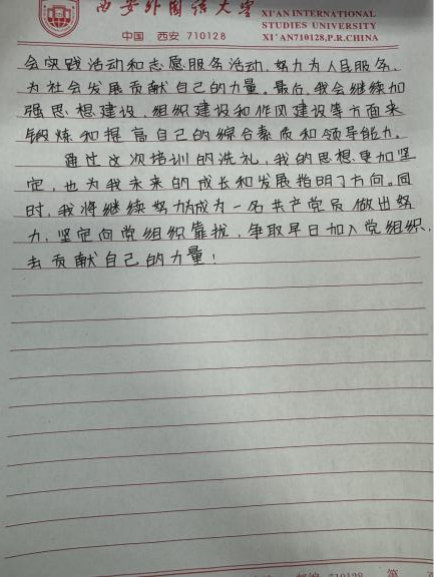 西安外国语大学
XI'AN INTERNATIONAL
STUDIES UNIVERSITY
中国 西安 710128
XI'AN710128,P.R.CHINA
会实践活动和志愿服务活动、努力为人民服务、
为社会发展贡献自己的力量。最后,我会继续加
强思想建设、组织建设和作风建设等方面来
锻炼和提高自己的综合素质和领导能力。
通过这次培训的洗礼,我的思想更加坚
定,也为我未来的成长和发展指明了方向。同
时,我将继续努力为成为一名共产党员做出努
力,坚定向党组织靠拢,争取早日加入党组织,
去贡献自己的力量!
邮编 710128 第